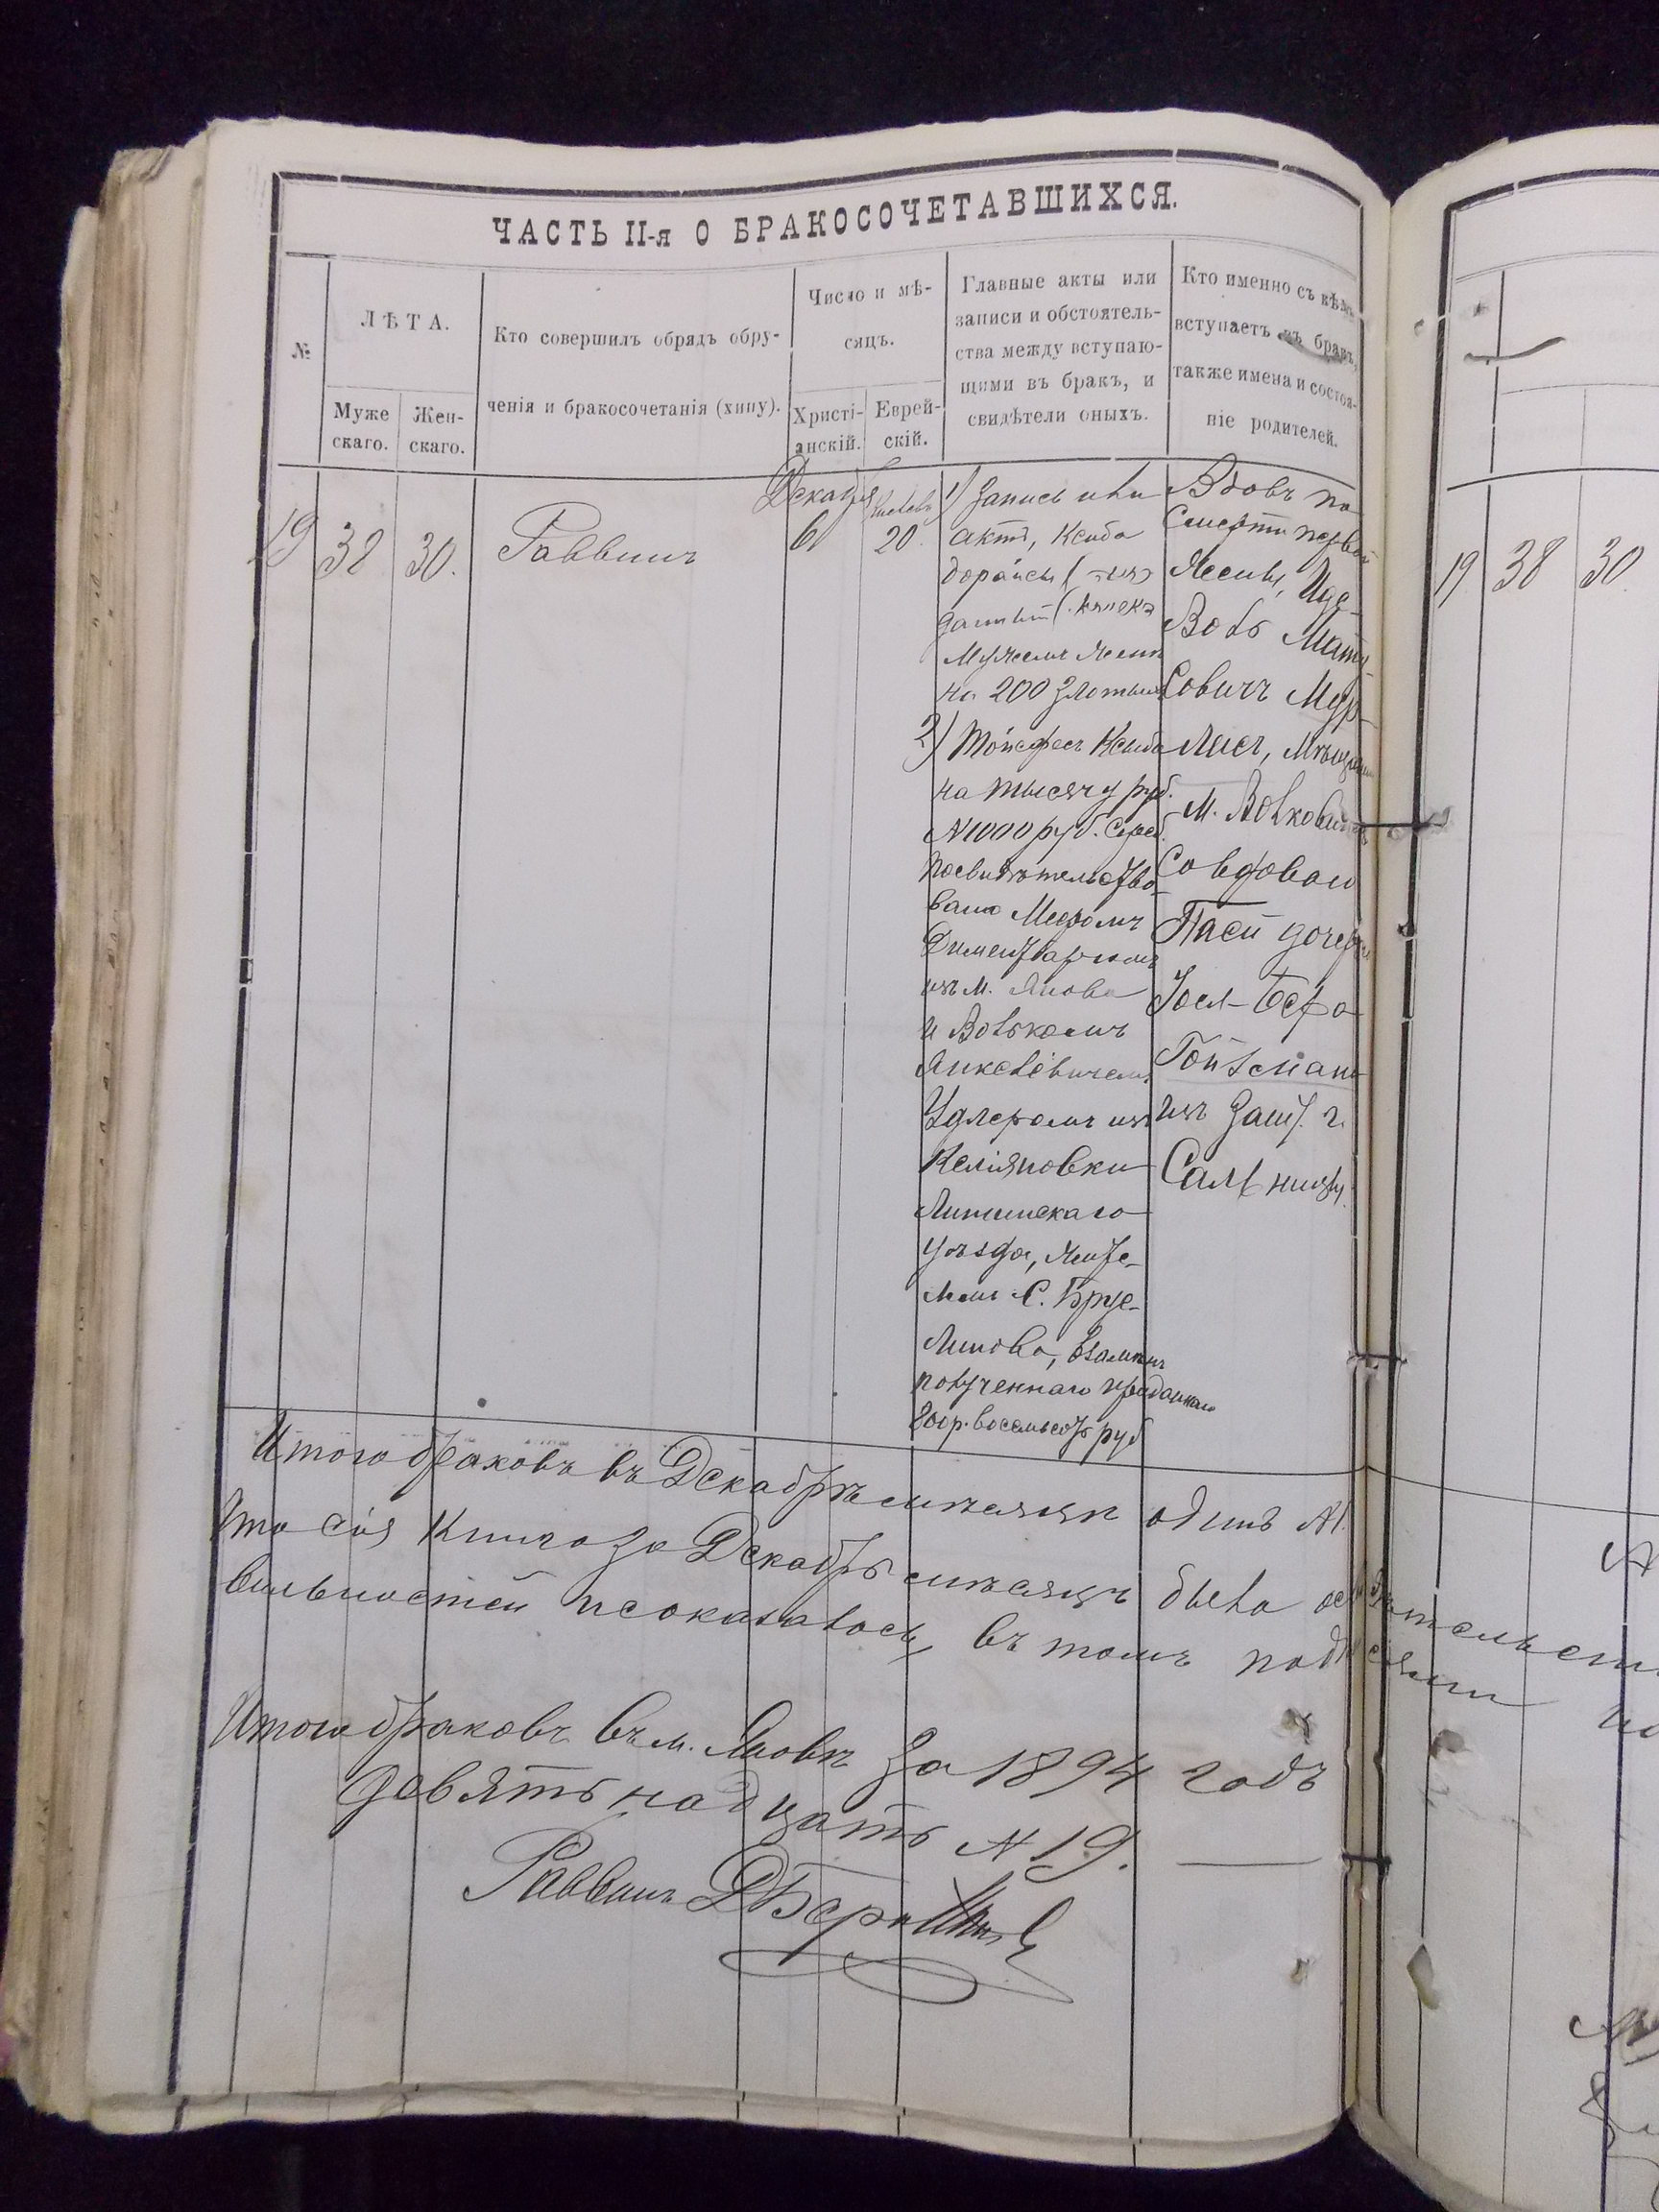 ЧАСТЬ II-я О БРАКОСОЧЕТАВШИХСЯ.
№
ЛѢТА.
Муже
скаго.
Жен-
скаго.
Кто совершилъ обрядъ обру-
ченія и бракосочетанія (хипу).
Число и мѣ-
сяцъ.
Христі-
анскій.
Еврей-
скій.
Главные акты или
записи и обстоятель-
ства между вступаю-
щими въ бракъ, и
свидѣтели оныхъ.
Кто именно съ кѣмъ
вступаетъ въ бракъ,
также имена и состоя-
ніе родителей.
19
38
30.
Раввинъ
Декабря
6
Кислевъ
20.
1) Запись или
актъ, Ксиба
дорайсы
мужемъ женѣ
на 200 злотыхъ
2) Тойсфесъ Ксиба
на тысячу руб.
№ 1000 руб. Сереб.
посвидѣтельство-
вано Мееромъ
изъ м. Янова
и Волькомъ
Янкелевичемъ
Удлеромъ изъ
Кеміяновки
Литинскаго
уѣзда, жите-
лями С. Брус-
линова, взамѣнъ
полученнаго приданнаго
800 р. восемьсотъ руб
Вдовъ по
Смерти первой
Жены, Иуд-
Вольф Мат
совичъ Мур-
лисъ, Мѣщанин
м. Волковинецъ
Со вдовою
Пасей дочерью
Иосл-Бера
Гойзмана
изъ Зашт. г.
Сальницы.
Итого браковъ въ Декабрѣ мѣсяцѣ одинъ № 1.
Что сія Книга за Декабрь мѣсяцъ была
вильностей неоказалось, въ томъ
Итого браковъ въ м. Яновѣ за 1894 годъ
девятьнадцать № 19.
Раввинъ
19
38
30